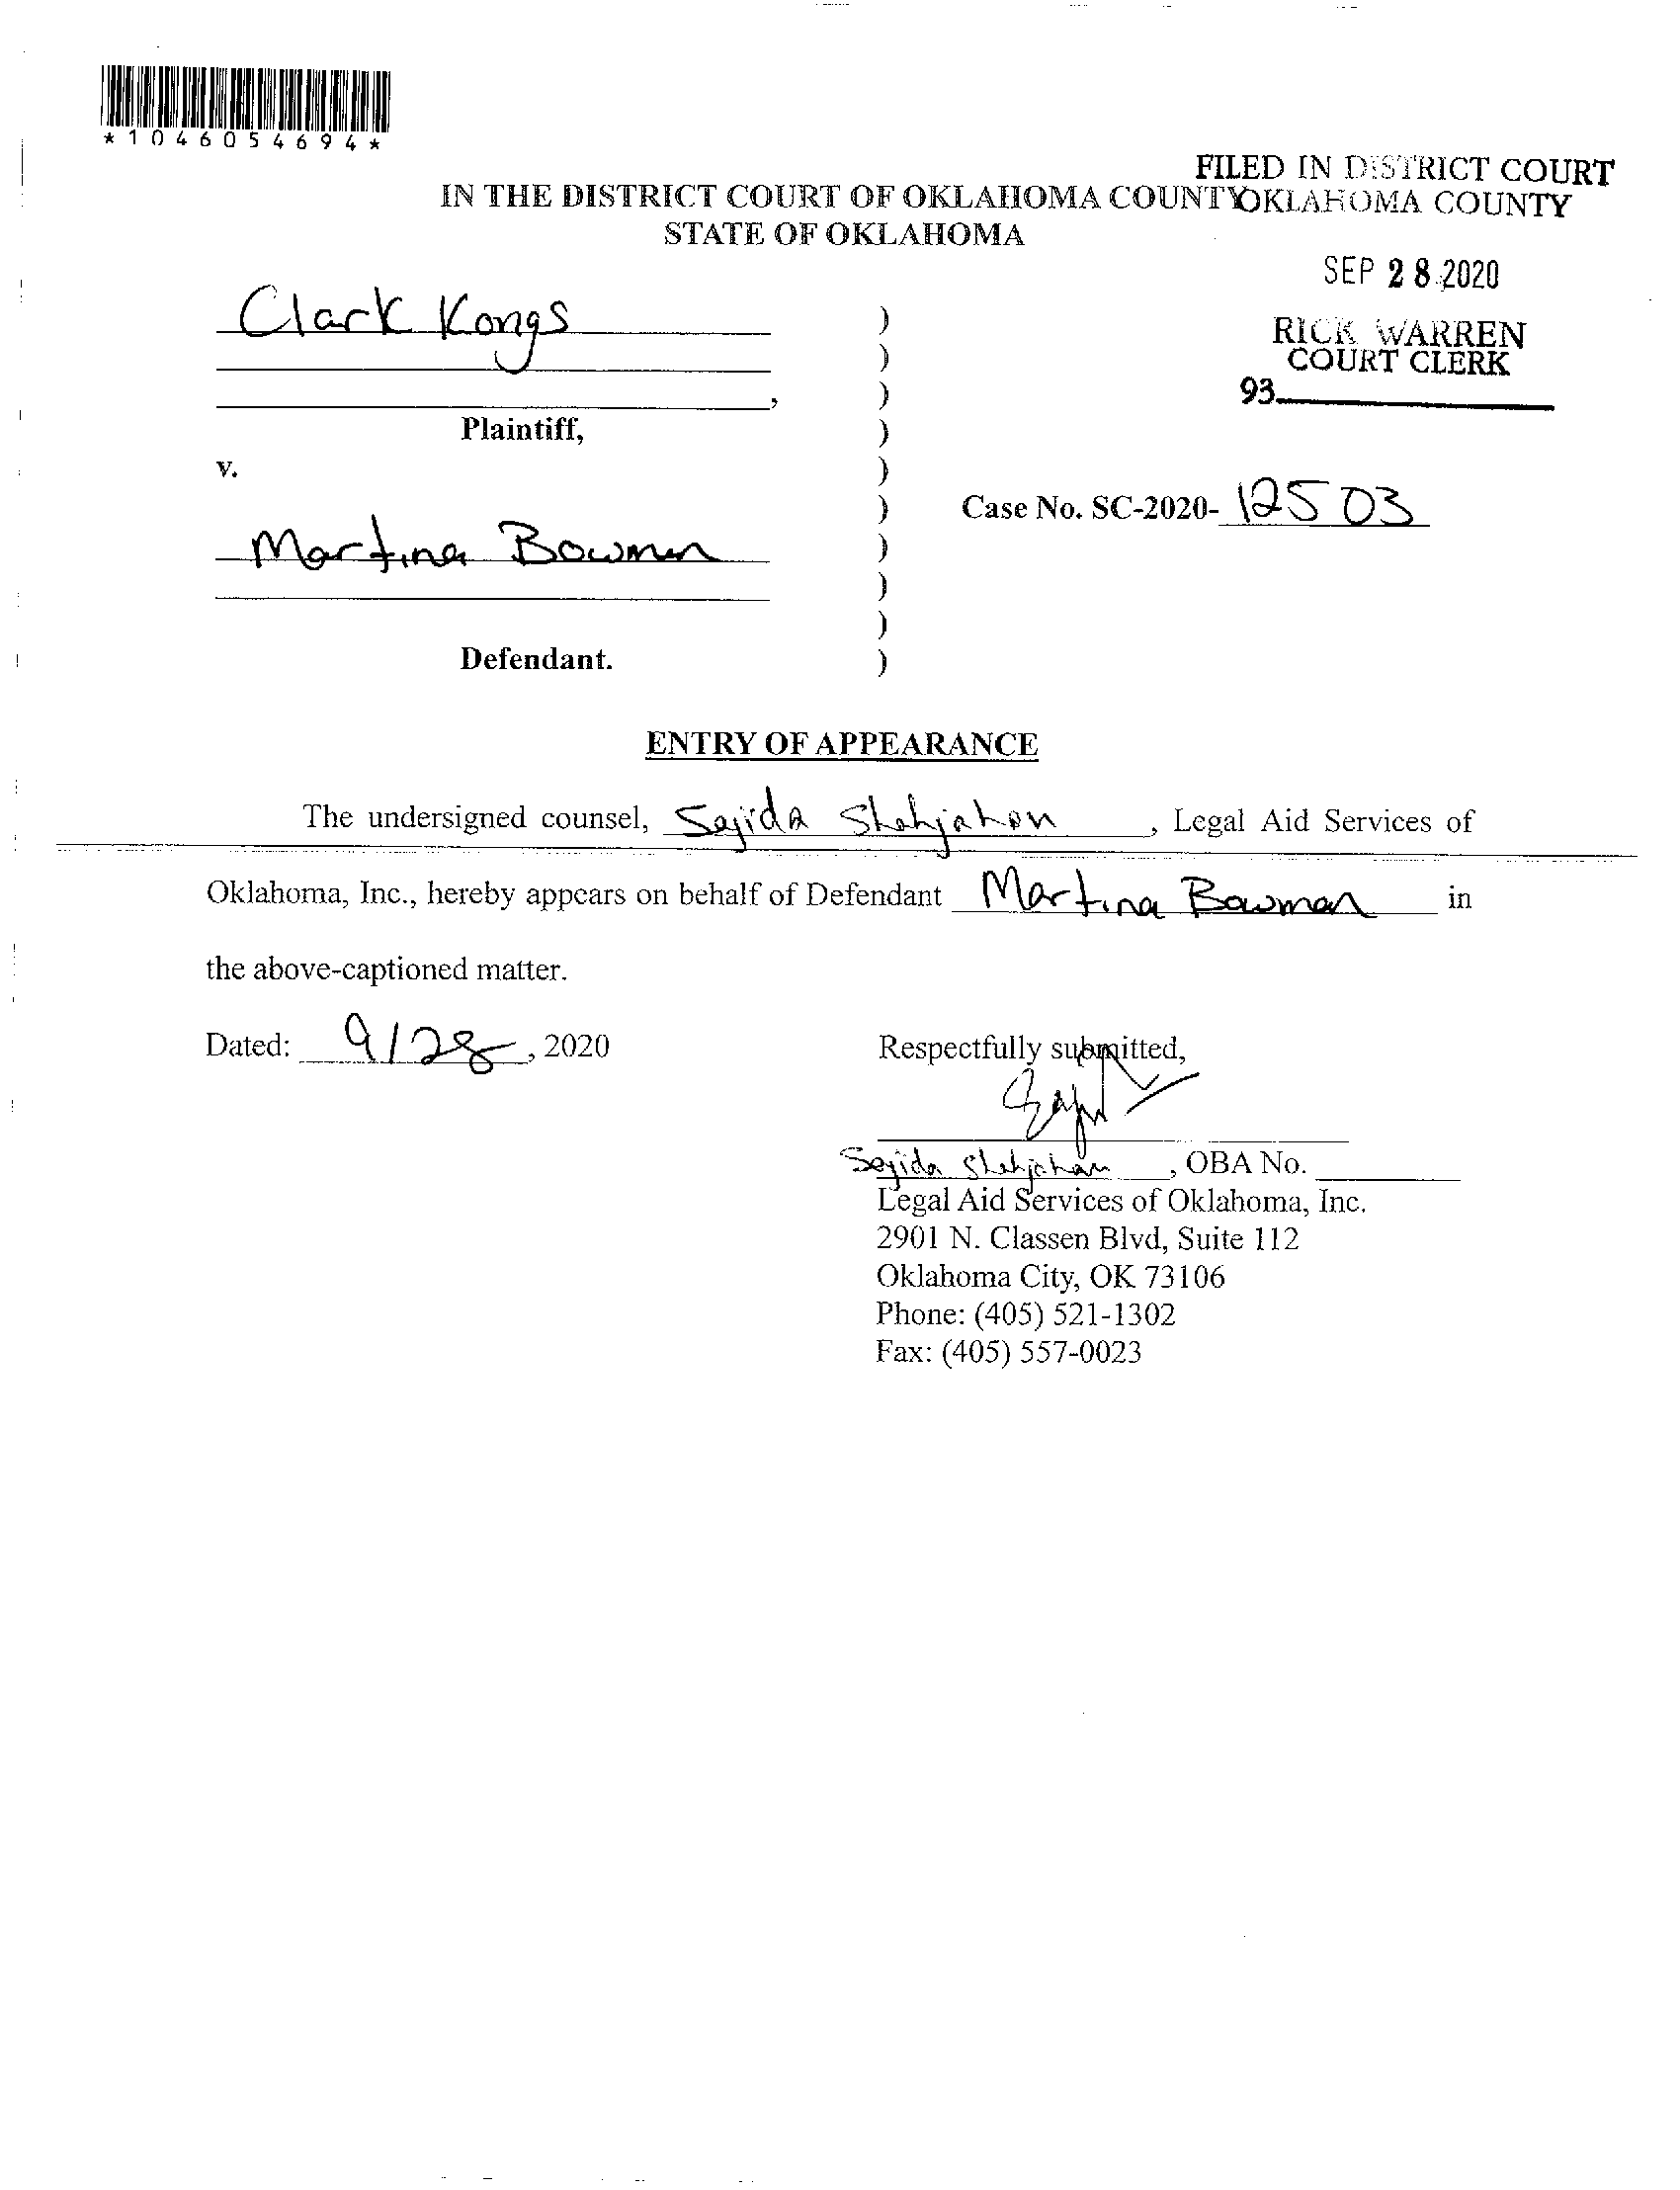 *1046054694*
FILED IN DISTRICT COURT
OKLAHOMA COUNTY
IN THE DISTRICT COURT OF OKLAHOMA COUNTY
STATE OF OKLAHOMA
SEP 28 2020
RICK WARREN
COURT CLERK
93
Clark Kongs
)
)
, )
Plaintiff, )
v. )
Case No. SC-2020- 12503
)
Martina Bowman )
)
)
Defendant. )
ENTRY OF APPEARANCE
The undersigned counsel, Sajida Shahjahan, Legal Aid Services of
Oklahoma, Inc., hereby appears on behalf of Defendant Martina Bowman in
the above-captioned matter.
Dated: 9/28, 2020
Respectfully submitted,
Sajida Shahjahan, OBA No.
Legal Aid Services of Oklahoma, Inc.
2901 N. Classen Blvd, Suite 112
Oklahoma City, OK 73106
Phone: (405) 521-1302
Fax: (405) 557-0023